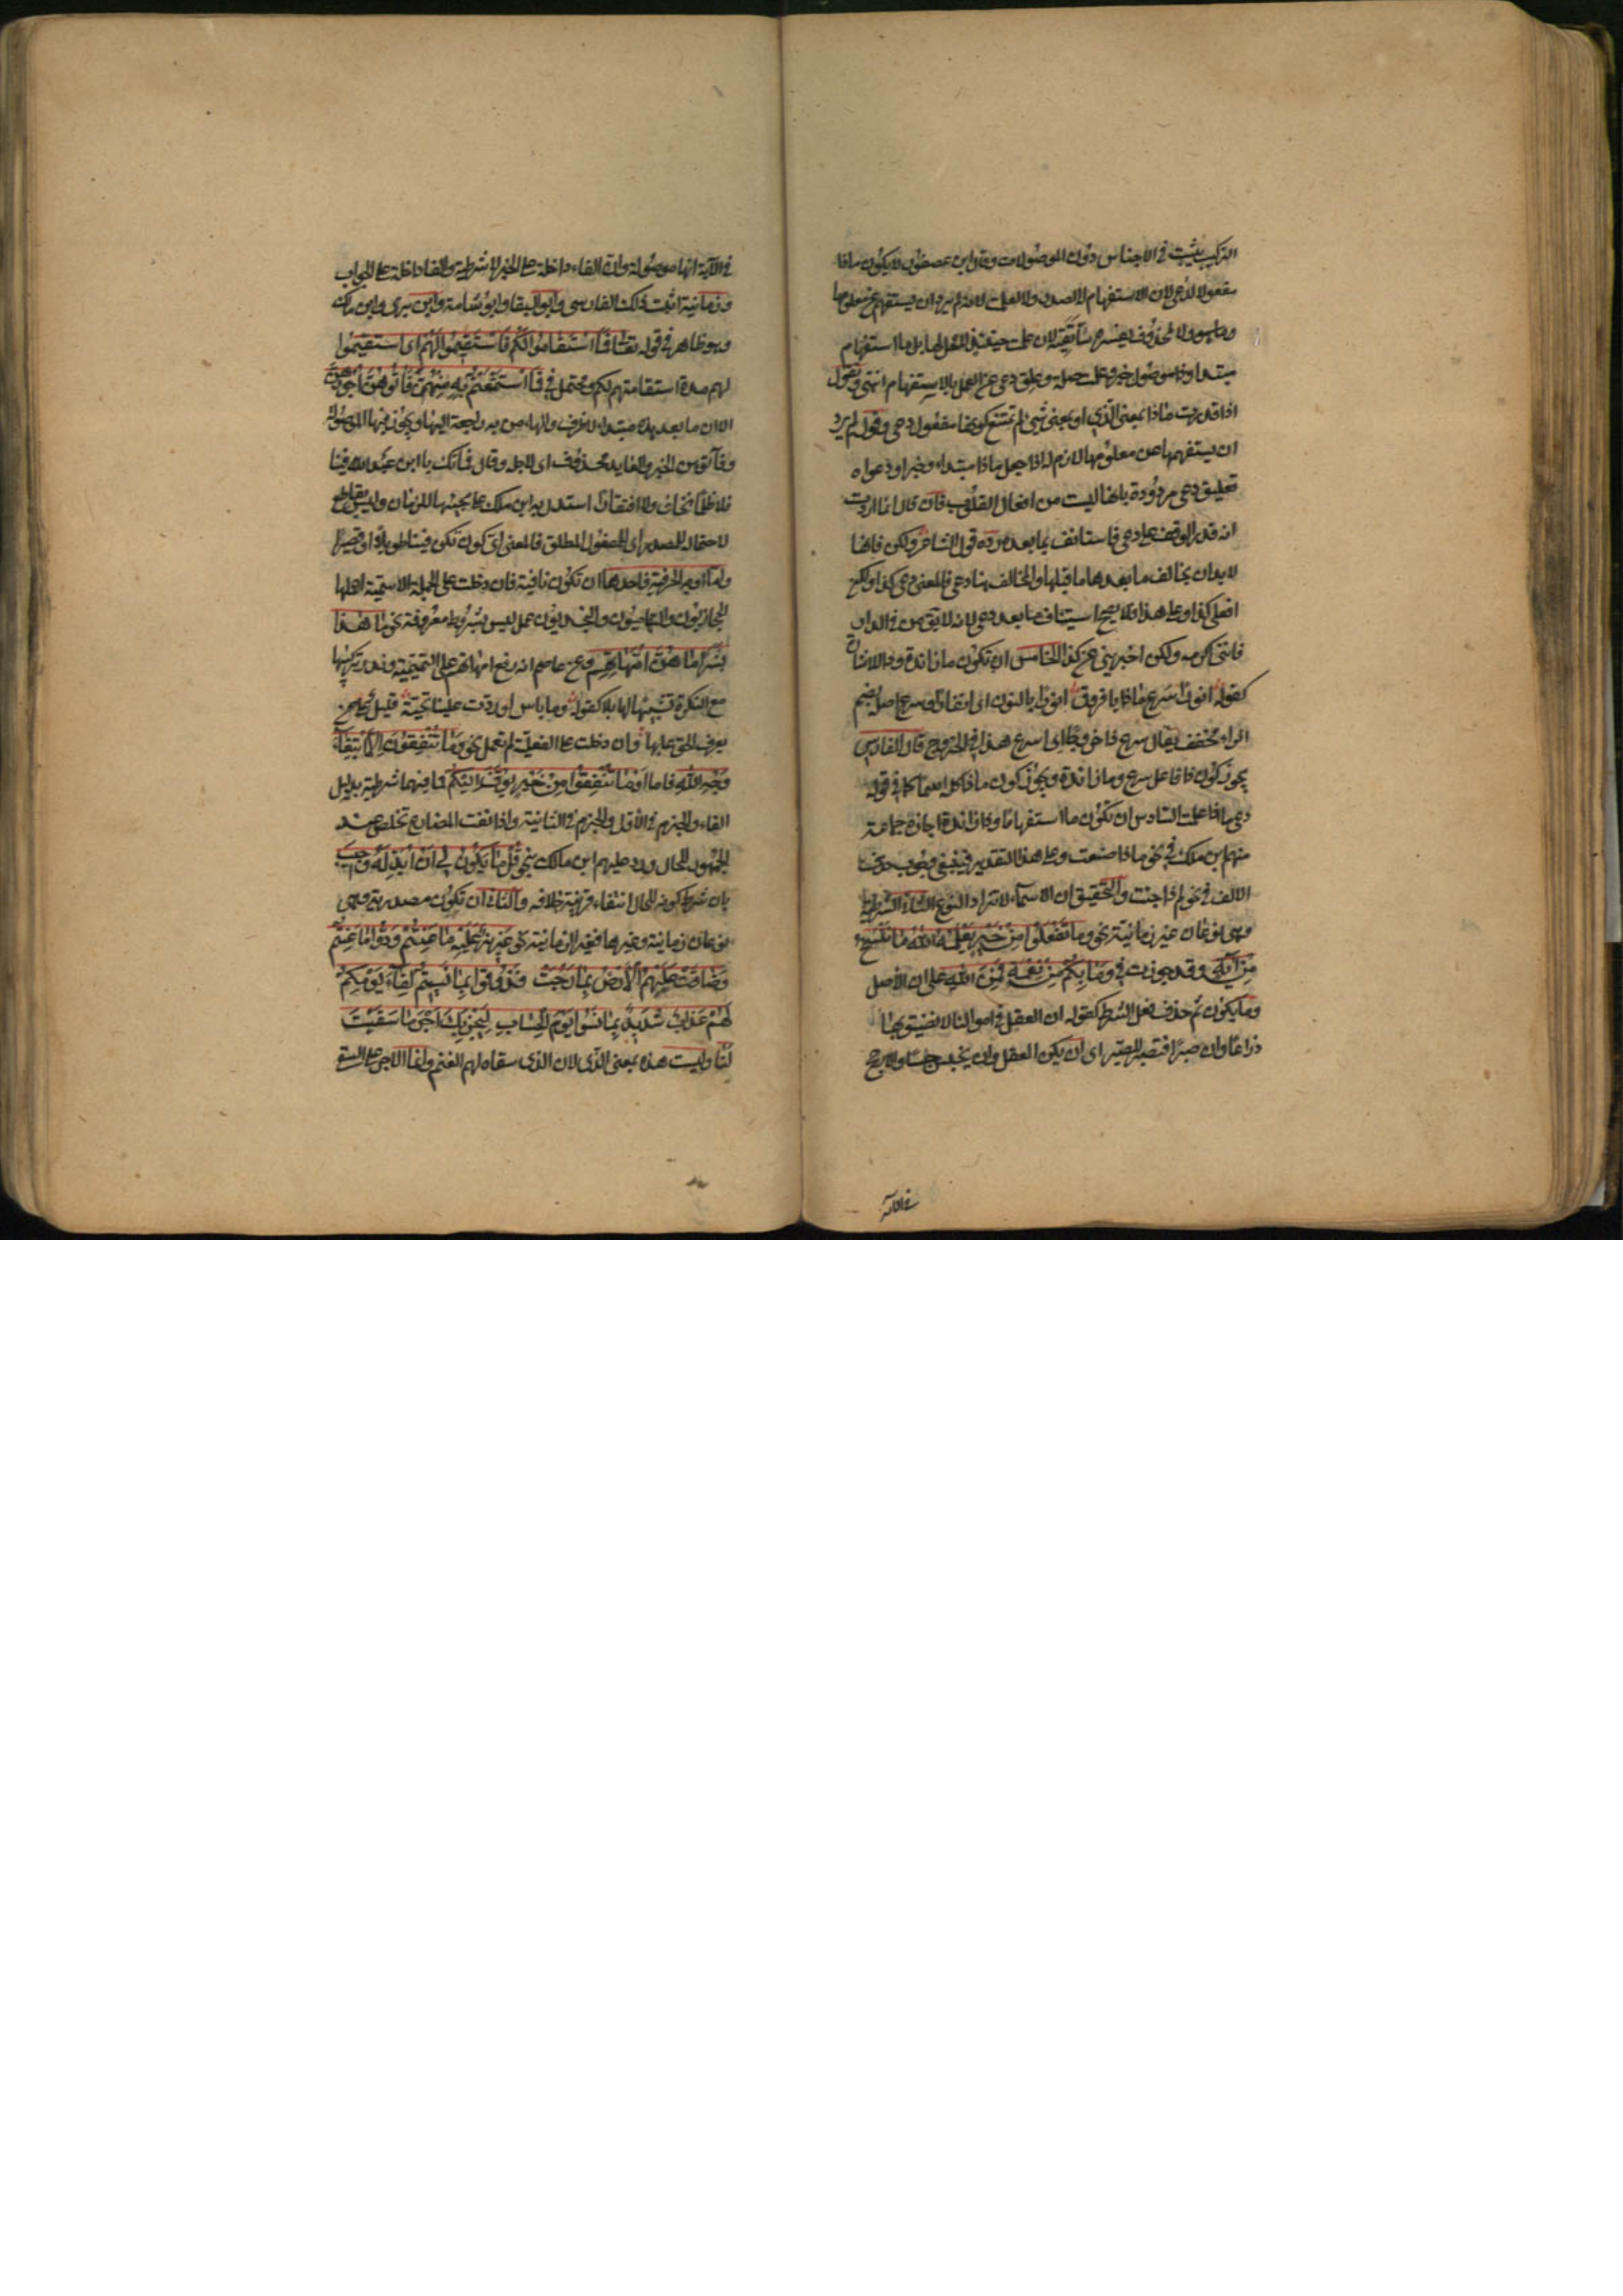 التركيب يثبت في الاجناس دون الموصولات وقال ابن عصفور لا يكون ماذا
مفعولا لدعى لان الاستفهام له الصدر ولا لعلمت لانه لم يرد ان يستفهم عن معلومها
ولا لمحذوف يفسره سأتقيه لان علمت حينئذ لا محل لها بل ما استفهام
مبتدا وذا موصول خبر وعلمت صلة وعلق دعى عن العمل بالاستفهام انتهى ونقول
اذا قدرت ماذا بمعنى الذي او بمعنى شئ لم يمتنع كونها مفعول دعى وقوله لم يرد
ان يستفهم عن معلومها لازم له اذا جعل ماذا مبتداء وخبرا ودعواه
تعليق دعى مردودة بانها ليست من افعال القلوب فان قال انما اردت
انه قدر الوقف على دعى فاستانف ما بعده رده قول الشاعر ولكن فانها
لا بد ان يخالف ما بعدها ما قبلها والمخالف هنا دعى فالمعنى دعى كذا ولكن
افعلى كذا وعلى هذا فلا يصح استيناف ما بعد دعى لانه لا يقال من في الدار
فانني اكرمه ولكن اخبرني عن كذا الخامس ان تكون ما زائدة وذا للاشارة
كقوله انورا سرع ماذا يا فروق انورا بالنون اي انفارا وسرع اصله بضم
الراء فخفف يقال سرع ذا خروجا اي اسرع هذا في الخروج قال الفارسي
يجوز كون ذا فاعل سرع وما زائدة ويجوز كون ماذا كله اسما كما في قوله
دعى ماذا علمت السادس ان تكون ما استفهاما وذا زائدة اجازه جماعة
منهم ابن ملك في نحو ماذا صنعت وعلى هذا التقدير فينبغي وجوب حذف
الالف في نحو لم ذا جئت والتحقيق ان الاسماء لا تزاد النوع الثاني الشرطية
وهي نوعان غير زمانية نحو وما تفعلوا من خير يعلمه الله ما ننسخ
من آية وقد جوزت في وما بكم من نعمة فمن الله على ان الاصل
وما يكون ثم حذف فعل الشرط كقوله ان العقل في اموالنا لا نضيق بها
ذراعا وان صبرا فنصبر للصبر اي ان يكن العقل وان نحبس حبسا والارجح
في الآية
في الآية انها موصولة وان الفاء داخلة على الخبر لا شرطية والفاء داخلة على الجواب
وزمانية اثبت ذلك الفارسي وابو البقا وابو شامة وابن بري وابن ملك
وهو ظاهر في قوله تعالى فما استقاموا لكم فاستقيموا لهم اي استقيموا
لهم مدة استقامتهم لكم ومحتمل في فما استمتعتم به منهن فآتوهن اجورهن
الا ان ما بعد هذه مبتداء لا ظرف والهاء من به راجعة اليها ويجوز فيها الموصولة
وفآتوهن الخبر والعايد محذوف اي لاجله وقال فما تك يا ابن عبد الله فينا
فلا ظلما نخاف ولا افتقارا استدل به ابن ملك على مجيئها للزمان وليس بقاطع
لاحتماله للمصدر اي للمفعول المطلق فالمعنى اي كون تكن فينا طويلا او قصيرا
واما اوجه الحرفية فاحدها ان تكون نافية فان دخلت على الجملة الاسمية اعملها
الحجازيون والتهاميون والنجديون عمل ليس بشروط معروفة نحو ما هذا
بشرا ما هن امهاتهم وعن عاصم انه رفع امهاتهم على التميمية وندر تركيبها
مع النكرة تشبيها لها بلا كقوله وما باس لو ردت علينا تحية قليل على من
يعرف الحق عابها وان دخلت على الفعلية لم تعمل نحو وما تنفقون الا ابتغاء
وجه الله فاما وما تنفقوا من خير يوف اليكم فما فيهما شرطية بدليل
الفاء والجزم في الاول والجزم في الثانية واذا نفت المضارع تخلص عند
الجمهور للحال ورد عليهم ابن مالك بنحو قل ما يكون لي ان ابدله واجيب
بان شرط كونه للحال انتفاء قرينة خلافه والثاني ان تكون مصدرية وهي
نوعان زمانية وغيرها فغير الزمانية نحو عزيز عليه ما عنتم ودوا ما عنتم
وضاقت عليهم الارض بما رحبت فذوقوا بما نسيتم لقاء يومكم
لهم عذاب شديد بما نسوا يوم الحساب ليجزيك اجر ما سقيت
لنا وليست هذه بمعنى الذي لان الذي سقاه لهم الغنم وانما الاجر على السقي